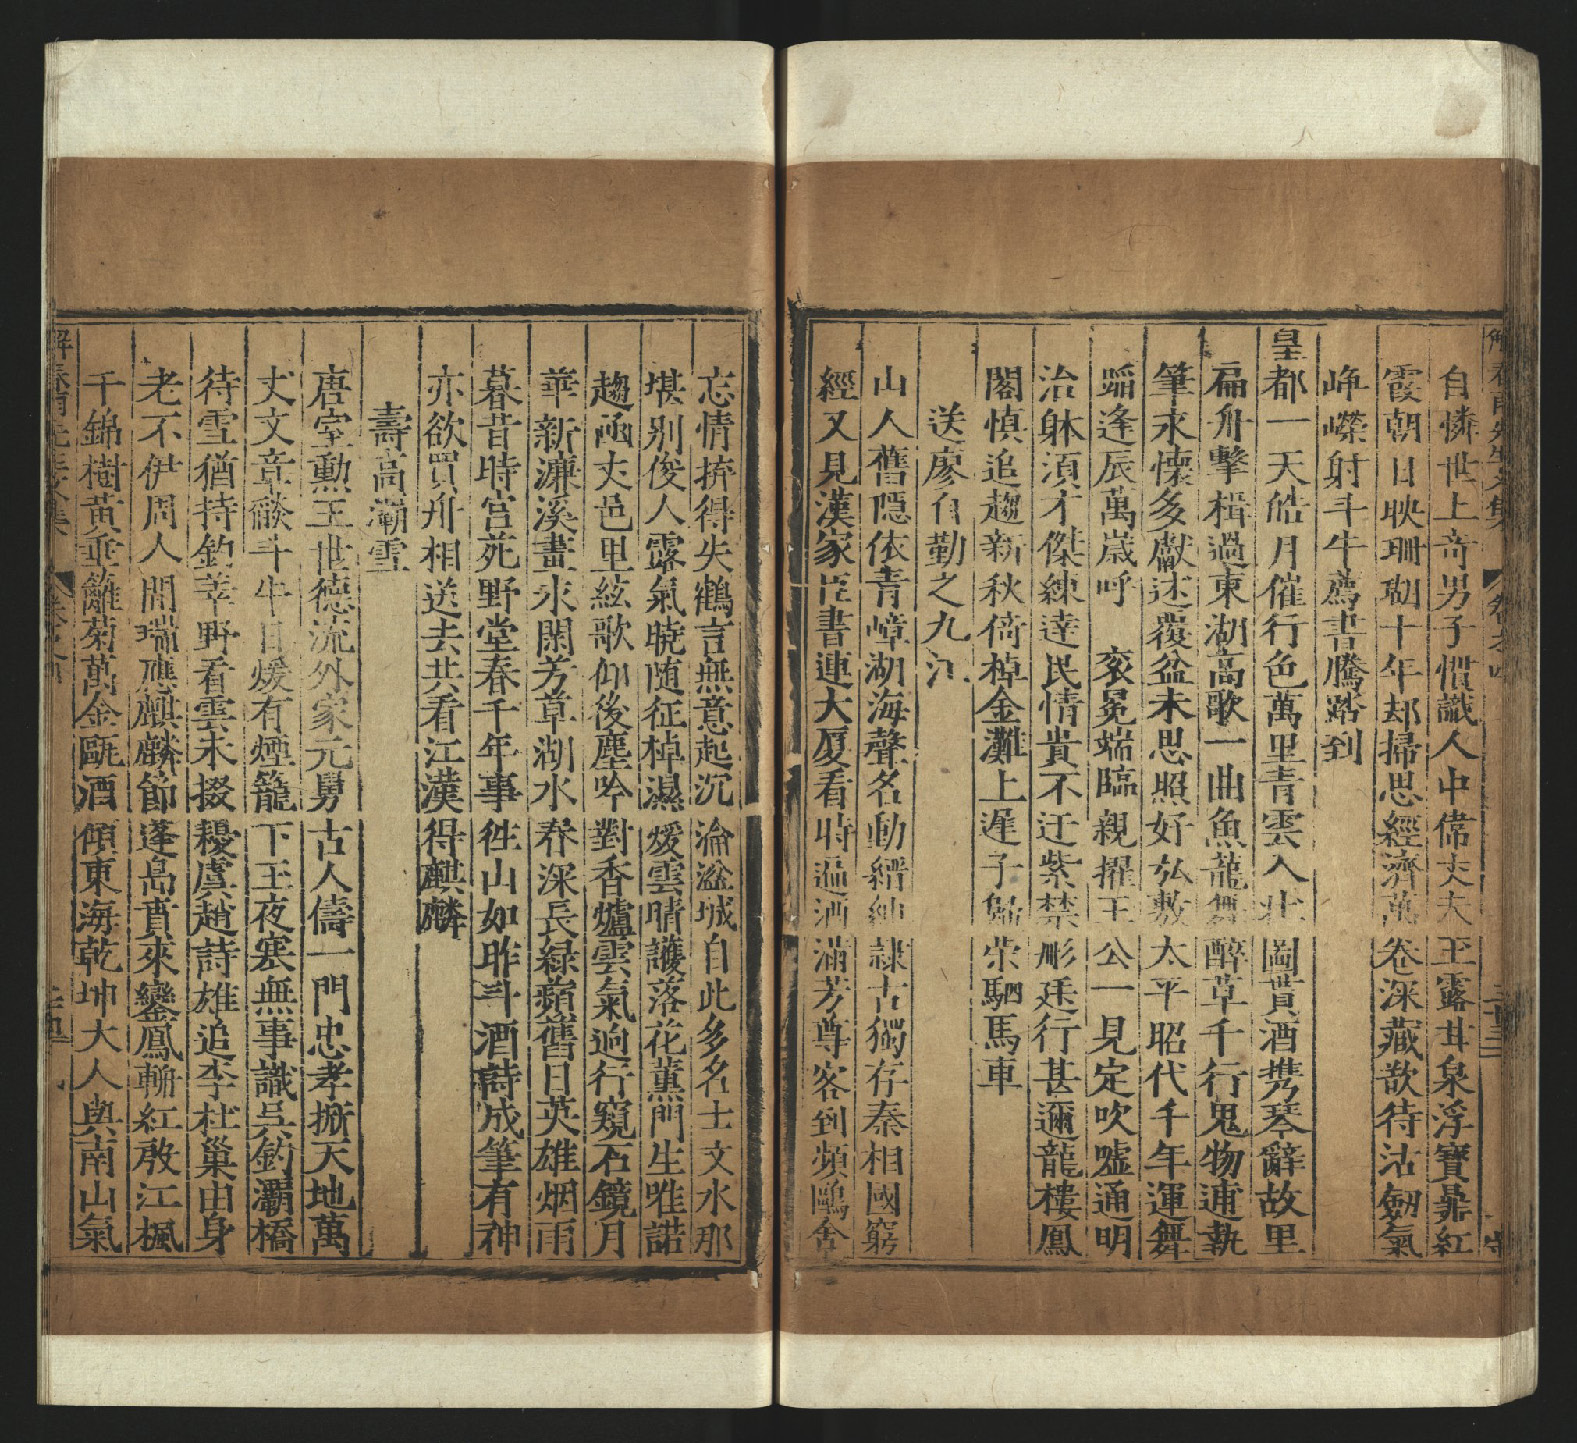 自憐世上奇男子慣識人中偉丈夫玉露甘泉浮寶鼎紅
霞朝日映珊瑚十年却掃思經濟萬卷深藏欲待沽劔氣
崢嶸射斗牛薦書騰踏到
皇都一天皓月催行色萬里青雲入壯圖貰酒携琴辭故里
扁舟擊楫過東湖高歌一曲魚龍舞醉草千行鬼物逋執
筆永懷多獻述覆盆未思照好弘敷太平昭代千年運舞
蹈逢辰萬歲呼 衮冕端臨親擢王公一見定吹噓通明
治躰湏才傑練達民情貴不迂紫禁彤廷行甚邇龍樓鳳
閣慎追趨新秋倚棹金灘上遲子歸榮駟馬車
送廖自勤之九江
山人舊隠依青嶂湖海聲名動縉紳隷古獨存秦相國窮
經又見漢家臣書連大厦看時遍酒滿芳尊客到頻鷗舍
忘情拚得失鶴言無意起沉淪湓城自此多名士文水那
堪别俊人露氣晓随征棹濕煖雲晴護落花薰門生唯諾
趨函丈邑里絃歌仰後塵吟對香爐雲氣逈行窺石鏡月
華新濂溪畫永閑芳草湖水春深長綠蘋舊日英雄烟雨
暮昔時宫苑野堂春千年事徃山如昨斗酒詩成筆有神
亦欲買舟相送去共看江漢得麒麟
壽高灞雪
唐室勲王世德流外家元舅古人儔一門忠孝掀天地萬
丈文章燄斗牛日煖有煙籠下玉夜寒無事識吳鈎灞橋
待雪猶持釣莘野看雲未掇耰虞趙詩雄追李杜巢由身
老不伊周人間瑞應麒麟節蓬島賁來鑾鳳輈紅敵江楓
千錦樹黃垂籬菊萬金甌酒傾東海乾坤大人與南山氣